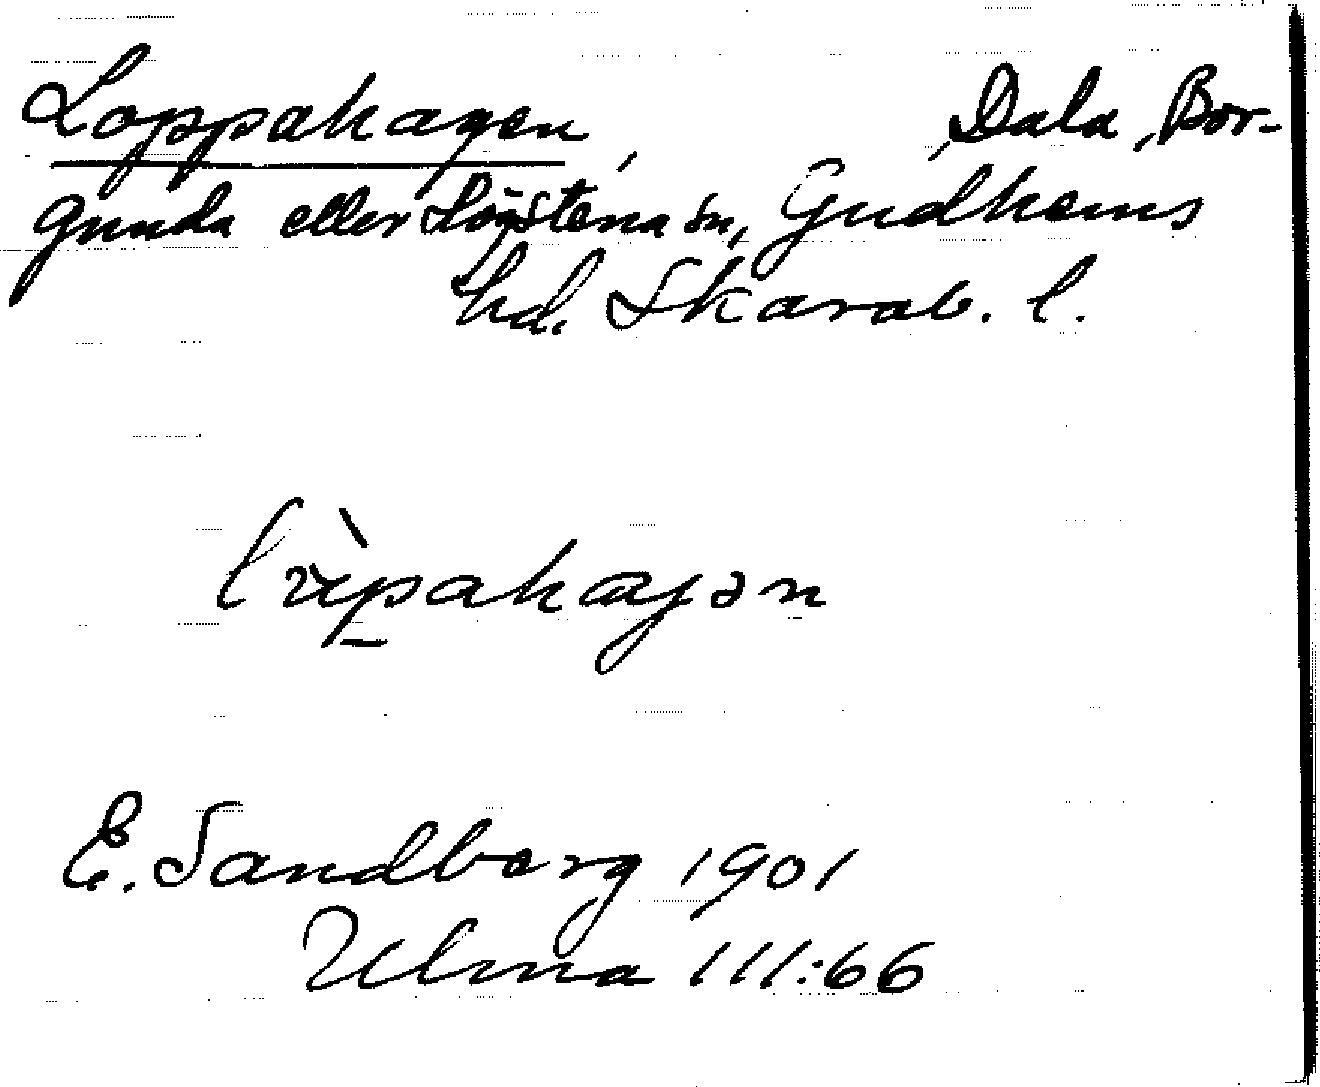 Loppahagen, Dala, Bor-
gunda eller Högstena sn, Gudhems
hd. Skarab. l.
E. Sandberg 1901
Ulma 111:66